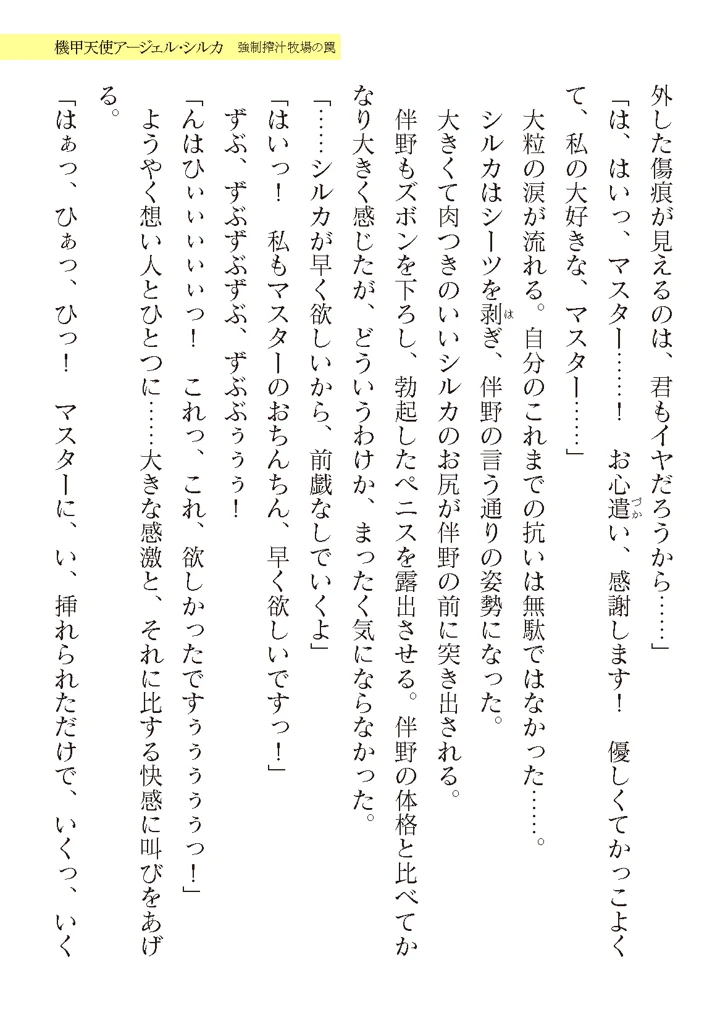 機甲天使アージェル・シルカ　強制搾汁牧場の罠
外した傷痕が見えるのは、君もイヤだろうから……」
「は、はいっ、マスター……！　お心遣い、感謝します！　優しくてかっこよく
づか
て、私の大好きな、マスター……」
大粒の涙が流れる。自分のこれまでの抗いは無駄ではなかった……。
シルカはシーツを剥ぎ、伴野の言う通りの姿勢になった。
は
大きくて肉つきのいいシルカのお尻が伴野の前に突き出される。
伴野もズボンを下ろし、勃起したペニスを露出させる。伴野の体格と比べてか
なり大きく感じたが、どういうわけか、まったく気にならなかった。
「……シルカが早く欲しいから、前戯なしでいくよ」
「はいっ！　私もマスターのおちんちん、早く欲しいですっ！」
ずぶ、ずぶずぶずぶ、ずぶぶぅぅぅ！
「んはひぃぃぃぃぃっ！　これっ、これ、欲しかったですぅぅぅぅぅっ！」
ようやく想い人とひとつに……大きな感激と、それに比する快感に叫びをあげ
る。
「はぁっ、ひぁっ、ひっ！　マスターに、い、挿れられただけで、いくっ、いく